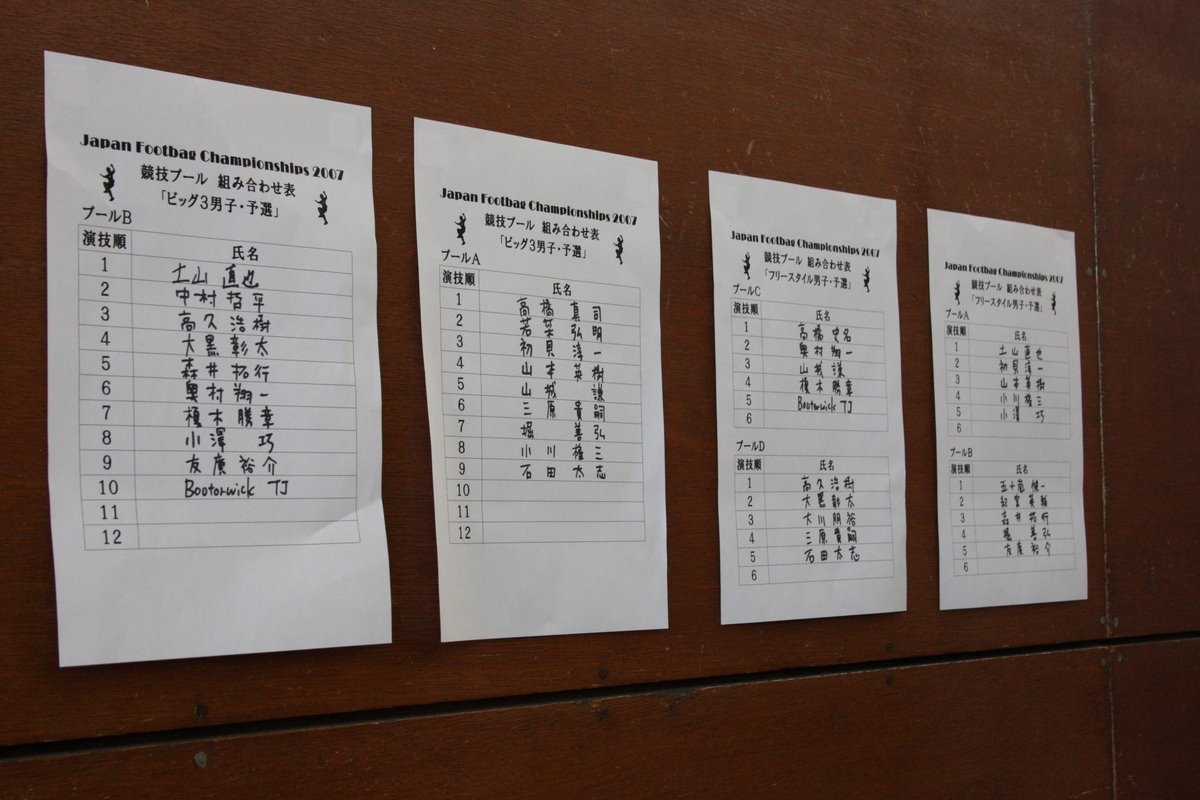 Japan Footbag Championships 2007
競技プール 組み合わせ表
「ビッグ3男子・予選」
プールB
演技順 氏名
1 土山 直也
2 中村 哲平
3 高久 浩樹
4 大黒 彰太
5 森井 拓行
6 奥村 翔一
7 榎木 勝章
8 小澤 巧
9 友廣 裕介
10 Bootorwick TJ
11
12
Japan Footbag Championships 2007
競技プール 組み合わせ表
「ビッグ3男子・予選」
プールA
演技順 氏名
1 高橋 真司
2 若菜 弘明
3 初貝 淳一
4 山本 英樹
5 山城 謙
6 三原 貴嗣
7 堀 善弘
8 小川 権三
9 石田 太志
10
11
12
Japan Footbag Championships 2007
競技プール 組み合わせ表
「フリースタイル男子・予選」
プールC
演技順 氏名
1 高橋
2 奥村 翔一
3 山城 謙
4 榎木 勝章
5 Bootorwick TJ
6
プールD
演技順 氏名
1 高久 浩樹
2 大黒 彰太
3 大川 朋裕
4 三原 貴嗣
5 石田 太志
6
Japan Footbag Championships 2007
競技プール 組み合わせ表
「フリースタイル男子・予選」
プールA
演技順 氏名
1 土山 直也
2 初貝 淳一
3 山本 英樹
4 小川 権三
5 小澤 巧
6
プールB
演技順 氏名
1 五十嵐 健一
2 英輔
3 森井 拓行
4 堀 善弘
5 友廣 裕介
6